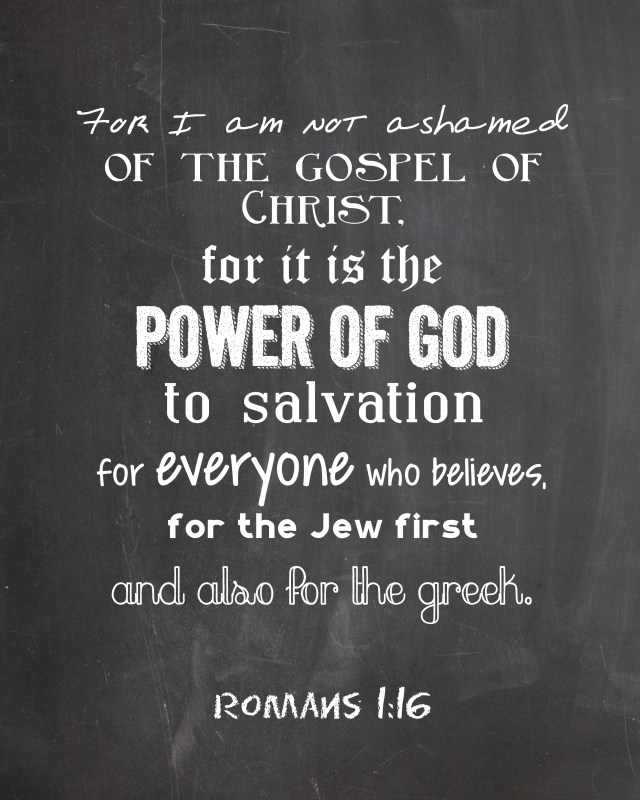 For I am not ashamed
OF THE GOSPEL OF
CHRIST,
for it is the
POWER OF GOD
to salvation
for everyone who believes,
for the Jew first
and also for the greek.
ROMANS 1:16